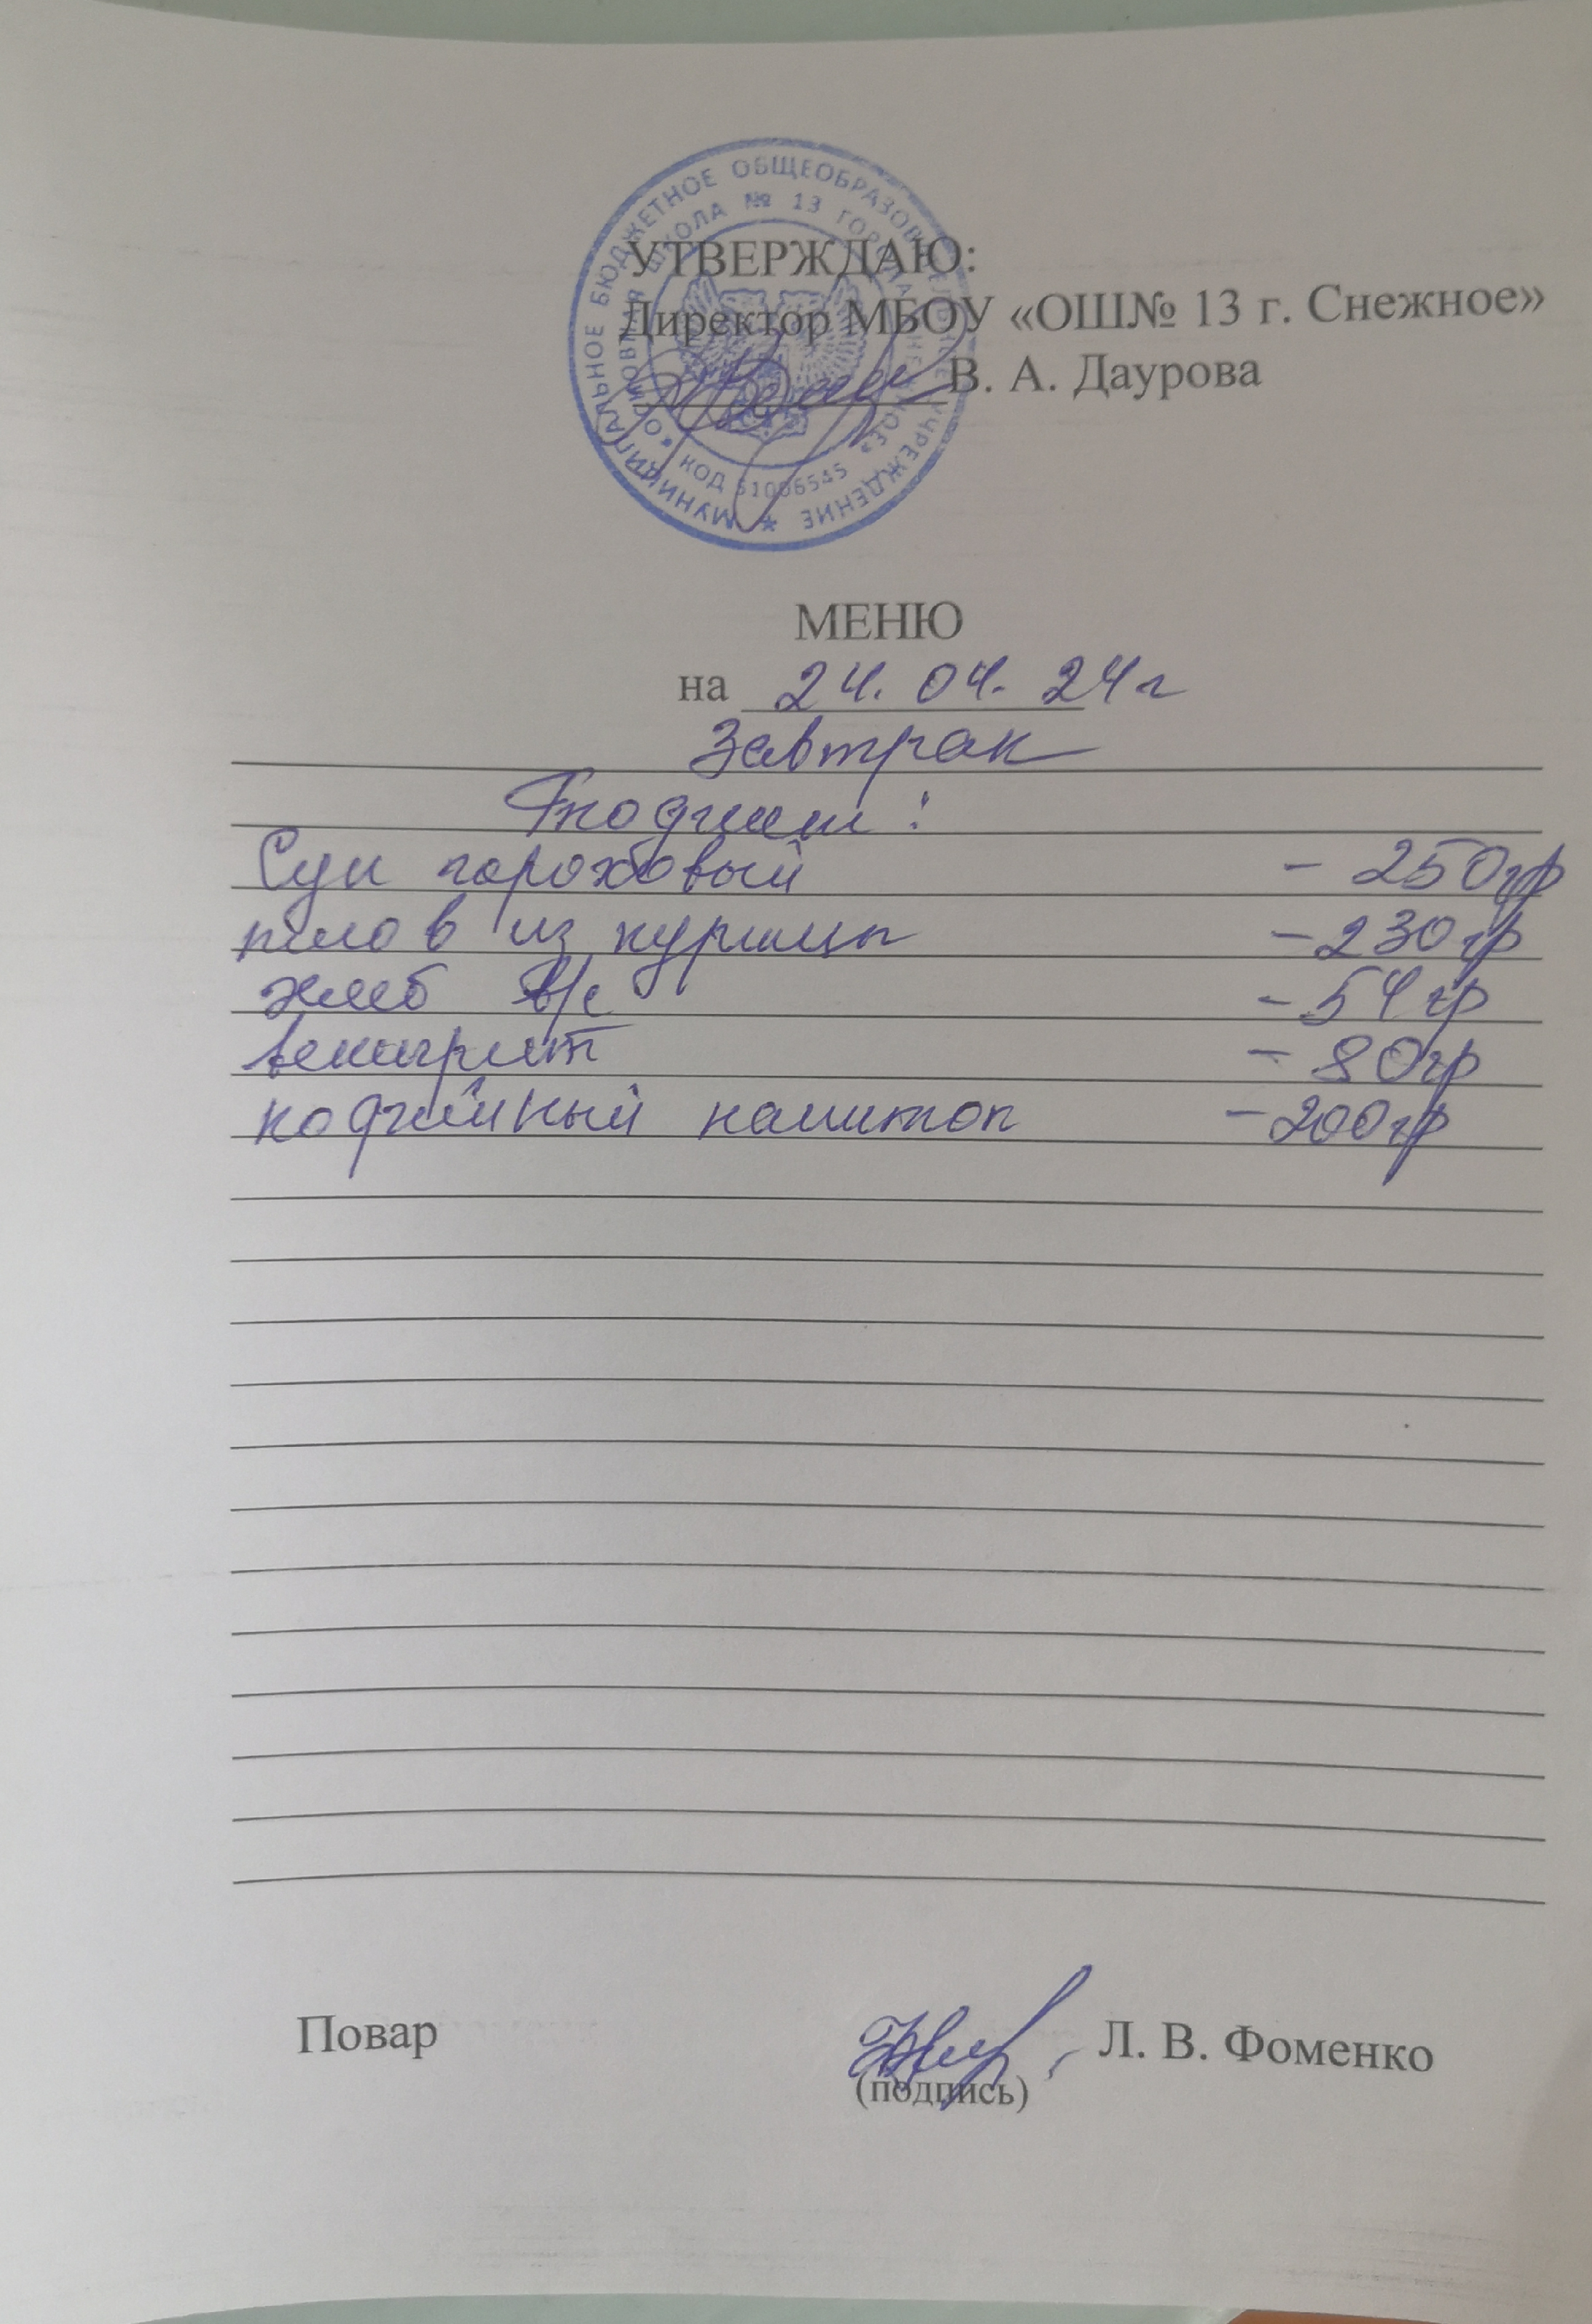 МУНИЦИПАЛЬНОЕ БЮДЖЕТНОЕ ОБЩЕОБРАЗОВАТЕЛЬНОЕ УЧРЕЖДЕНИЕ *
«ОСНОВНАЯ ШКОЛА № 13 ГОРОДА СНЕЖНОЕ»
КОД 51006545
УТВЕРЖДАЮ:
Директор МБОУ «ОШ№ 13 г. Снежное»
В. А. Даурова
МЕНЮ
на 24. 04. 24г
Завтрак
Суп гороховый - 250гр
плов из курицы - 230гр
хлеб в/с - 54гр
винегрет - 80гр
кофейный напиток - 200гр
Повар Л. В. Фоменко
(подпись)